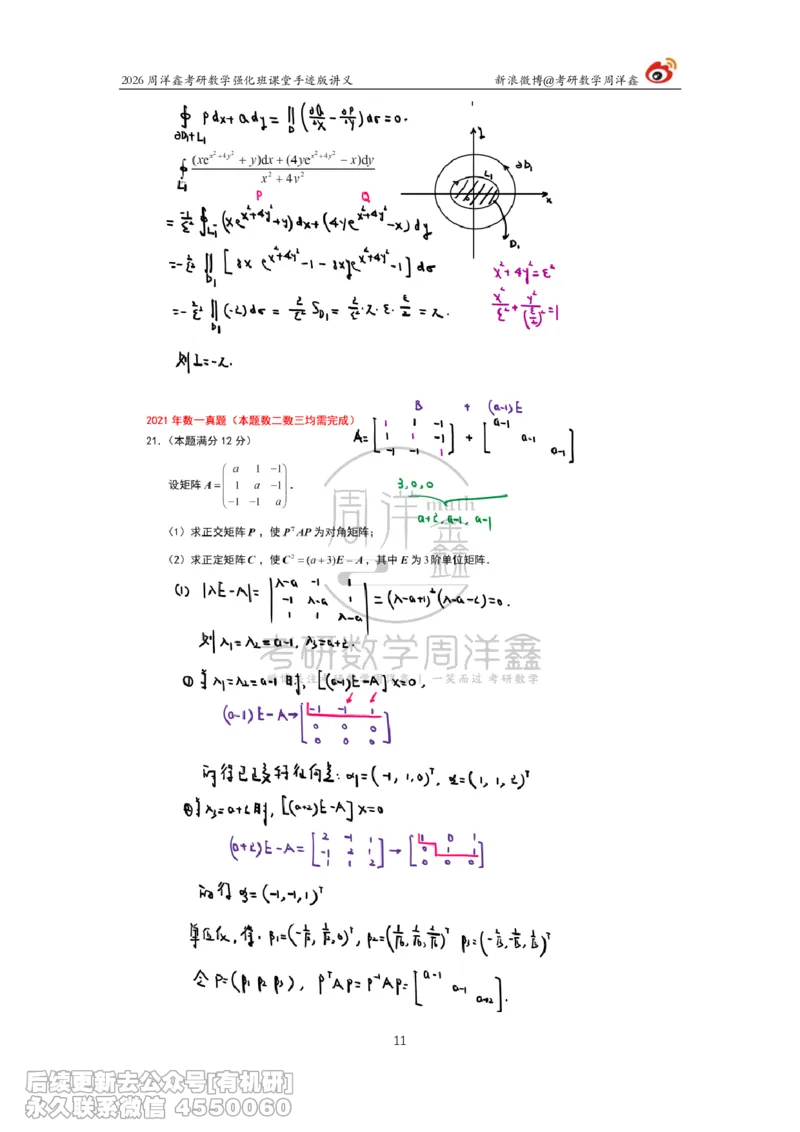 2026 周洋鑫考研数学强化班课堂手迹版讲义 新浪微博@考研数学周洋鑫
∮_{∂D₁+L₁} Pdx+Qdy = ∬_D (∂Q/∂x − ∂P/∂y)dσ = 0.
∮_{L₁} ((xe^{x²+4y²} + y)dx + (4ye^{x²+4y²} − x)dy)/(x² + 4y²)
P Q
= 1/ε² ∮_{L₁} (xe^{x²+4y²}+y)dx + (4ye^{x²+4y²}−x)dy
= −1/ε² ∬_{D₁} [8xye^{x²+4y²}−1−8xye^{x²+4y²}−1]dσ
= −1/ε² ∬_{D₁} (−2)dσ = 2/ε² S_{D₁} = 2/ε²·π·ε·ε/2 = π.
则I=−π.
y
∂D₁
L₁
x
D₁
x²+4y²=ε²
x²/ε² + y²/(ε/2)² = 1
2021 年数一真题（本题数二数三均需完成）
21.（本题满分 12 分）
B + (a-1)E
A= [1 1 -1; 1 1 -1; -1 -1 1] + [a-1 a-1 a-1]
设矩阵 A = (a 1 −1; 1 a −1; −1 −1 a).
3, 0, 0
a+2, a-1, a-1
（1）求正交矩阵 P ，使 PᵀAP 为对角矩阵；
（2）求正定矩阵 C ，使 C² = (a+3)E − A，其中 E 为 3 阶单位矩阵.
(1) |λE-A|= |λ-a -1 1; -1 λ-a 1; 1 1 λ-a| = (λ-a+1)²(λ-a-2)=0.
则 λ₁=λ₂=a-1, λ₃=a+2.
① 当λ₁=λ₂=a-1时, [(a-1)E-A]x=0,
(a-1)E-A→ [-1 -1 1; 0 0 0; 0 0 0]
解得已正交特征向量: α₁=(-1,1,0)ᵀ, α₂=(1,1,2)ᵀ
② 当λ₃=a+2时, [(a+2)E-A]x=0
(a+2)E-A= [2 -1 1; -1 2 1; 1 1 2] → [1 0 1; 0 1 1; 0 0 0]
解得 α₃=(-1,-1,1)ᵀ
单位化, 得. p₁=(-1/√2, 1/√2, 0)ᵀ, p₂=(1/√6, 1/√6, 2/√6)ᵀ p₃=(-1/√3, -1/√3, 1/√3)ᵀ
令 P=(p₁ p₂ p₃), PᵀAP=P⁻¹AP= [a-1 a-1 a+2].
周洋鑫
math
考研数学周洋鑫
一笑而过 考研数学
11
后续更新去公众号[有机研]
永久联系微信 4550060